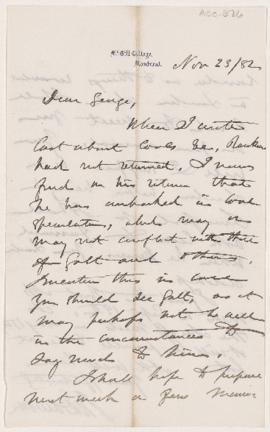 ACC-826
McGill College,
Montreal.
Nov 23/82
Dear George,
When I wrote
last about Coals &c, Rankine
had not returned. I now
find on his return that
he has embarked in coal
speculation, which may or
may not conflict with those
of Galt and others.
I mention this in case
you should see Galt, as it
may perhaps not be well
in the circumstances to
say much to him.
I shall hope to prepare
next week a few memor